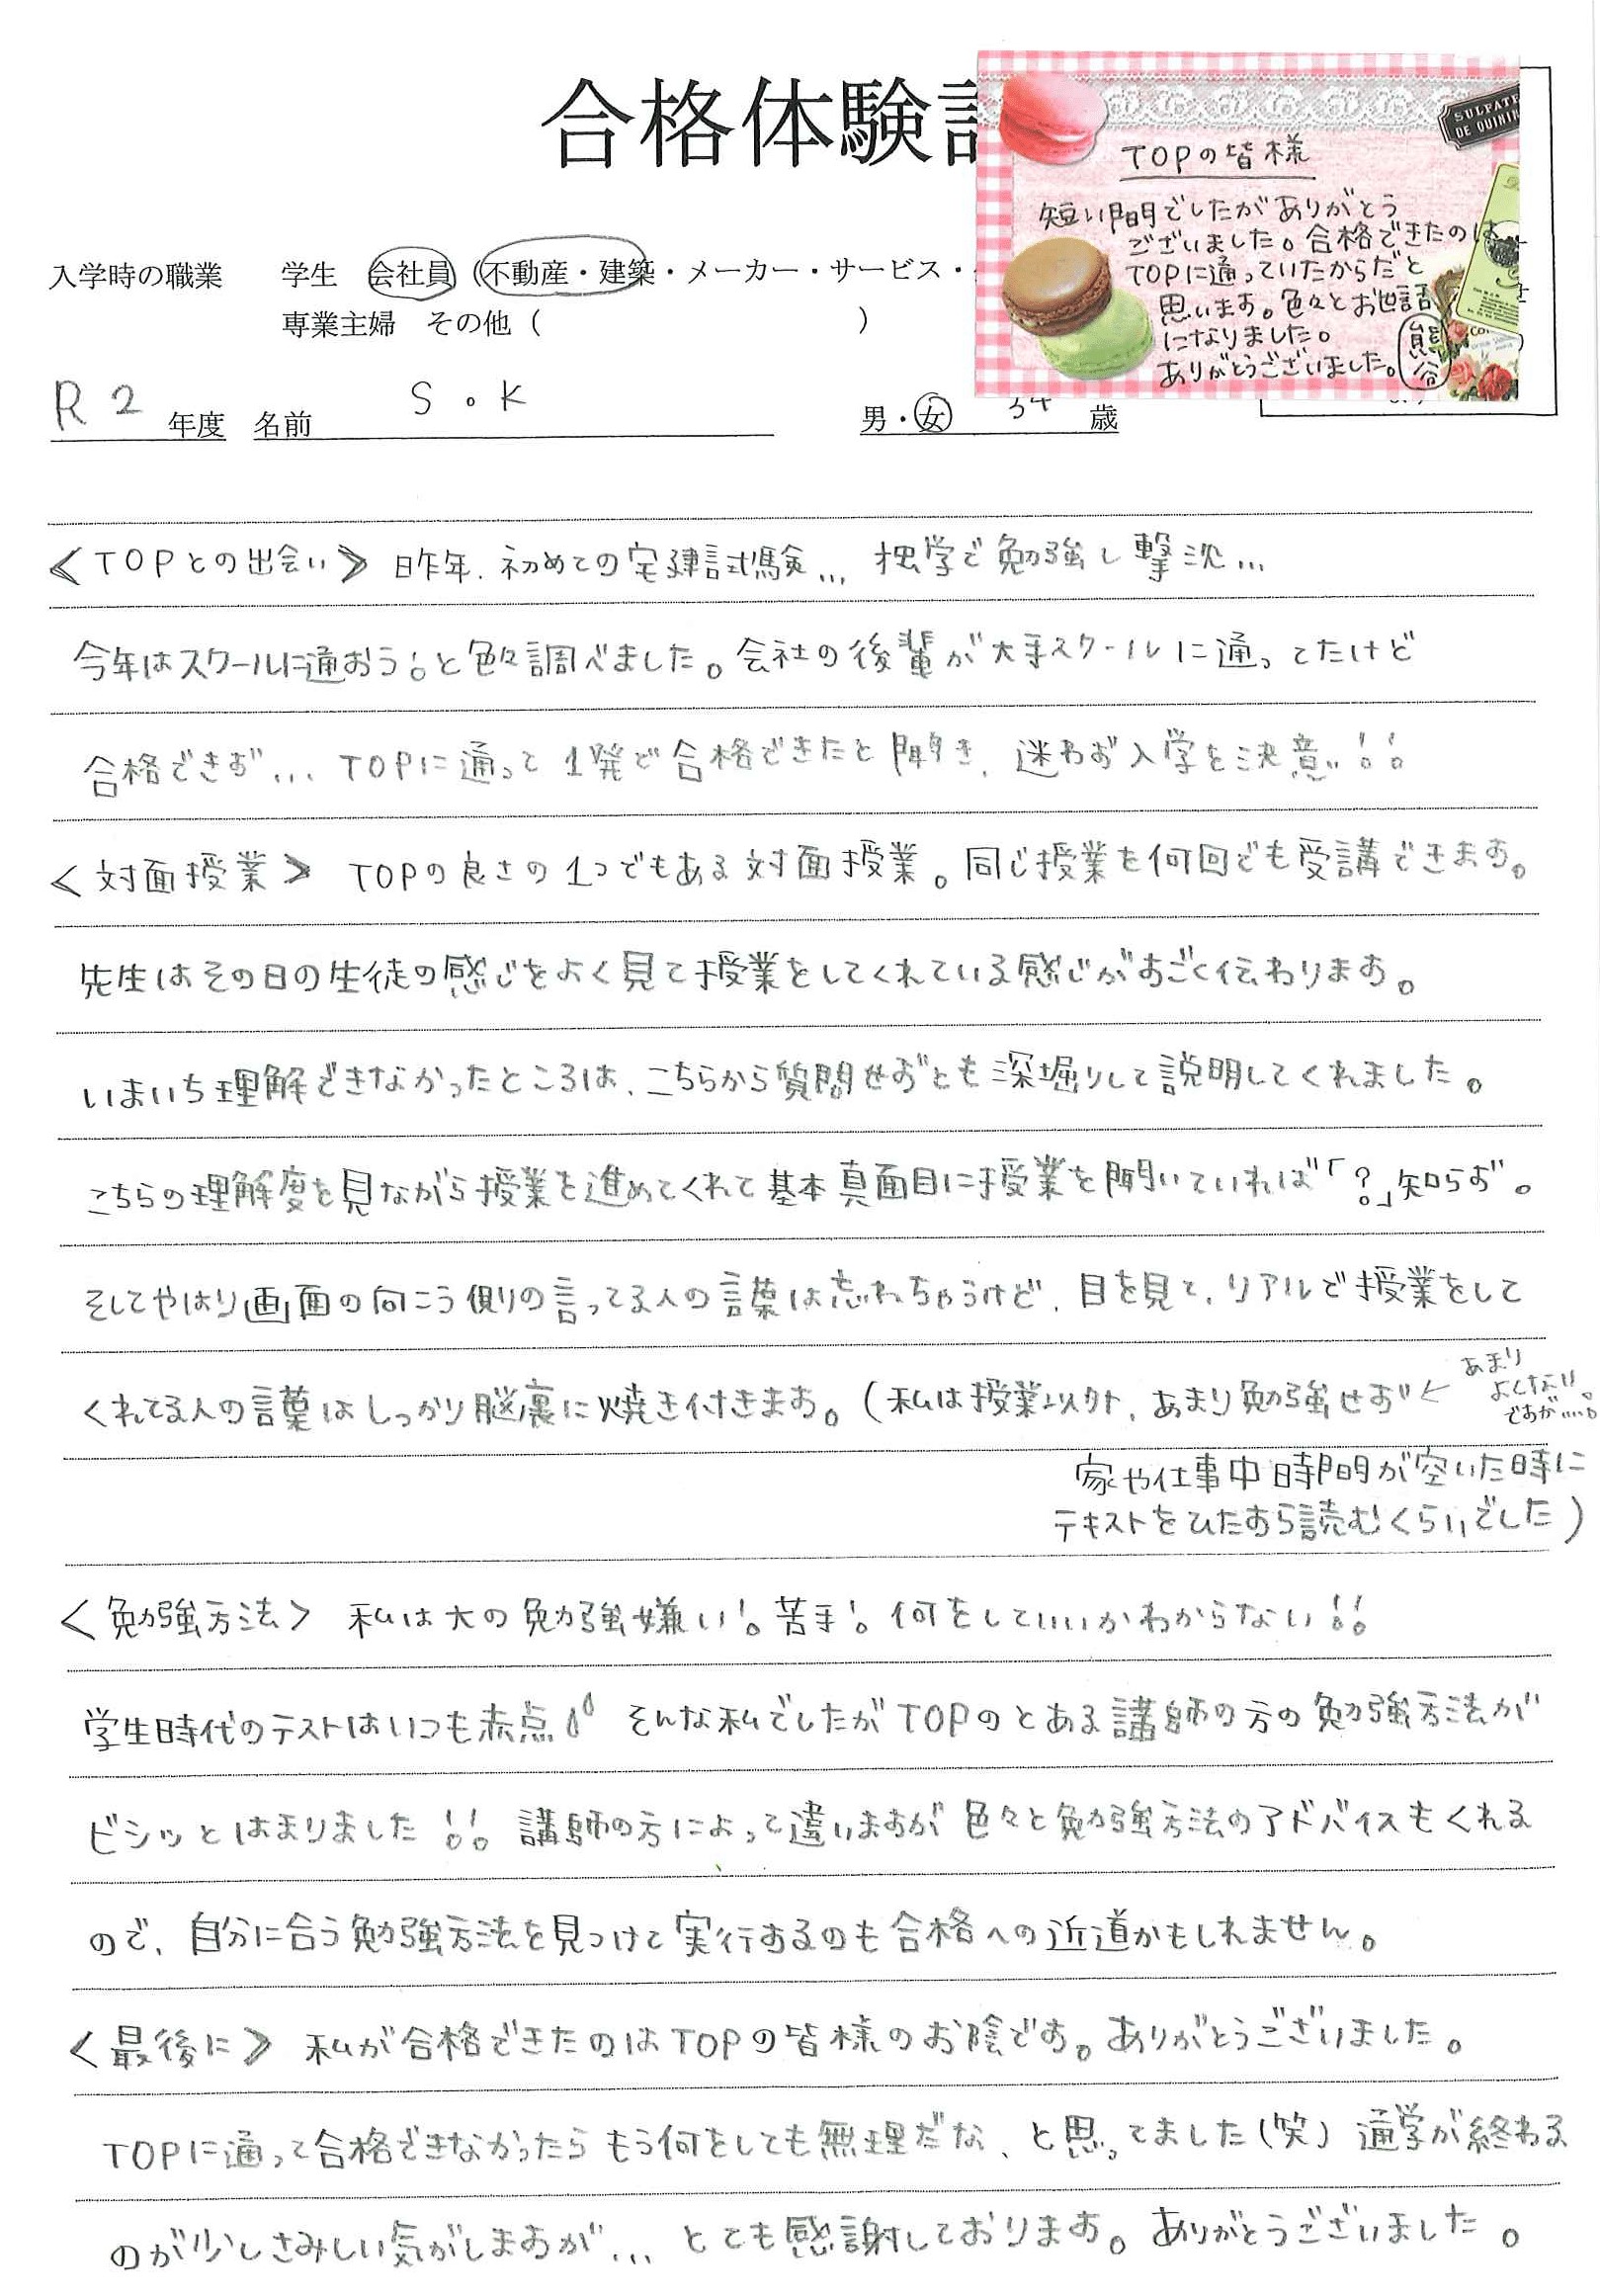 合格体験
TOPの皆様
短い間でしたがありがとう
ございました。合格できたのは
TOPに通っていたからだと
思います。色々とお世話
になりました。
ありがとうございました。熊谷
SULFATE
DE QUININ
入学時の職業 学生 会社員（不動産・建築・メーカー・サービス・
専業主婦 その他（ ）
R2 年度 名前 S.K 男・女 34 歳
≪TOPとの出会い≫ 昨年、初めての宅建試験… 独学で勉強し撃沈…
今年はスクールに通おう!と色々調べました。会社の後輩が大手スクールに通ってたけど
合格できず… TOPに通って1発で合格できたと聞き、迷わず入学を決意!!
<対面授業≫ TOPの良さの1つでもある対面授業。同じ授業を何回でも受講できます。
先生はその日の生徒の感じをよく見て授業をしてくれている感じがすごく伝わります。
いまいち理解できなかったところは、こちらから質問せずとも深堀りして説明してくれました。
こちらの理解度を見ながら授業を進めてくれて基本真面目に授業を聞いていれば「?」知らず。
そしてやはり画面の向こう側の言ってる人の言葉は忘れちゃうけど、目を見て、リアルで授業をして
くれてる人の言葉はしっかり脳裏に焼き付きます。(私は授業以外、あまり勉強せず← あまり
よくない
ですが….。
家や仕事中時間が空いた時に
テキストをひたすら読むくらいでした)
<勉強方法> 私は大の勉強嫌い!苦手!何をしていいかわからない!!
学生時代のテストはいつも赤点 そんな私でしたがTOPのとある講師の方の勉強方法が
ビシッとはまりました!! 講師の方によって違いますが色々と勉強方法のアドバイスもくれる
ので、自分に合う勉強方法を見つけて実行するのも合格への近道かもしれません。
<最後に≫ 私が合格できたのはTOPの皆様のお陰です。ありがとうございました。
TOPに通って合格できなかったらもう何をしても無理だな、と思ってました(笑) 通学が終わる
のが少しさみしい気がしますが… とても感謝しております。ありがとうございました。